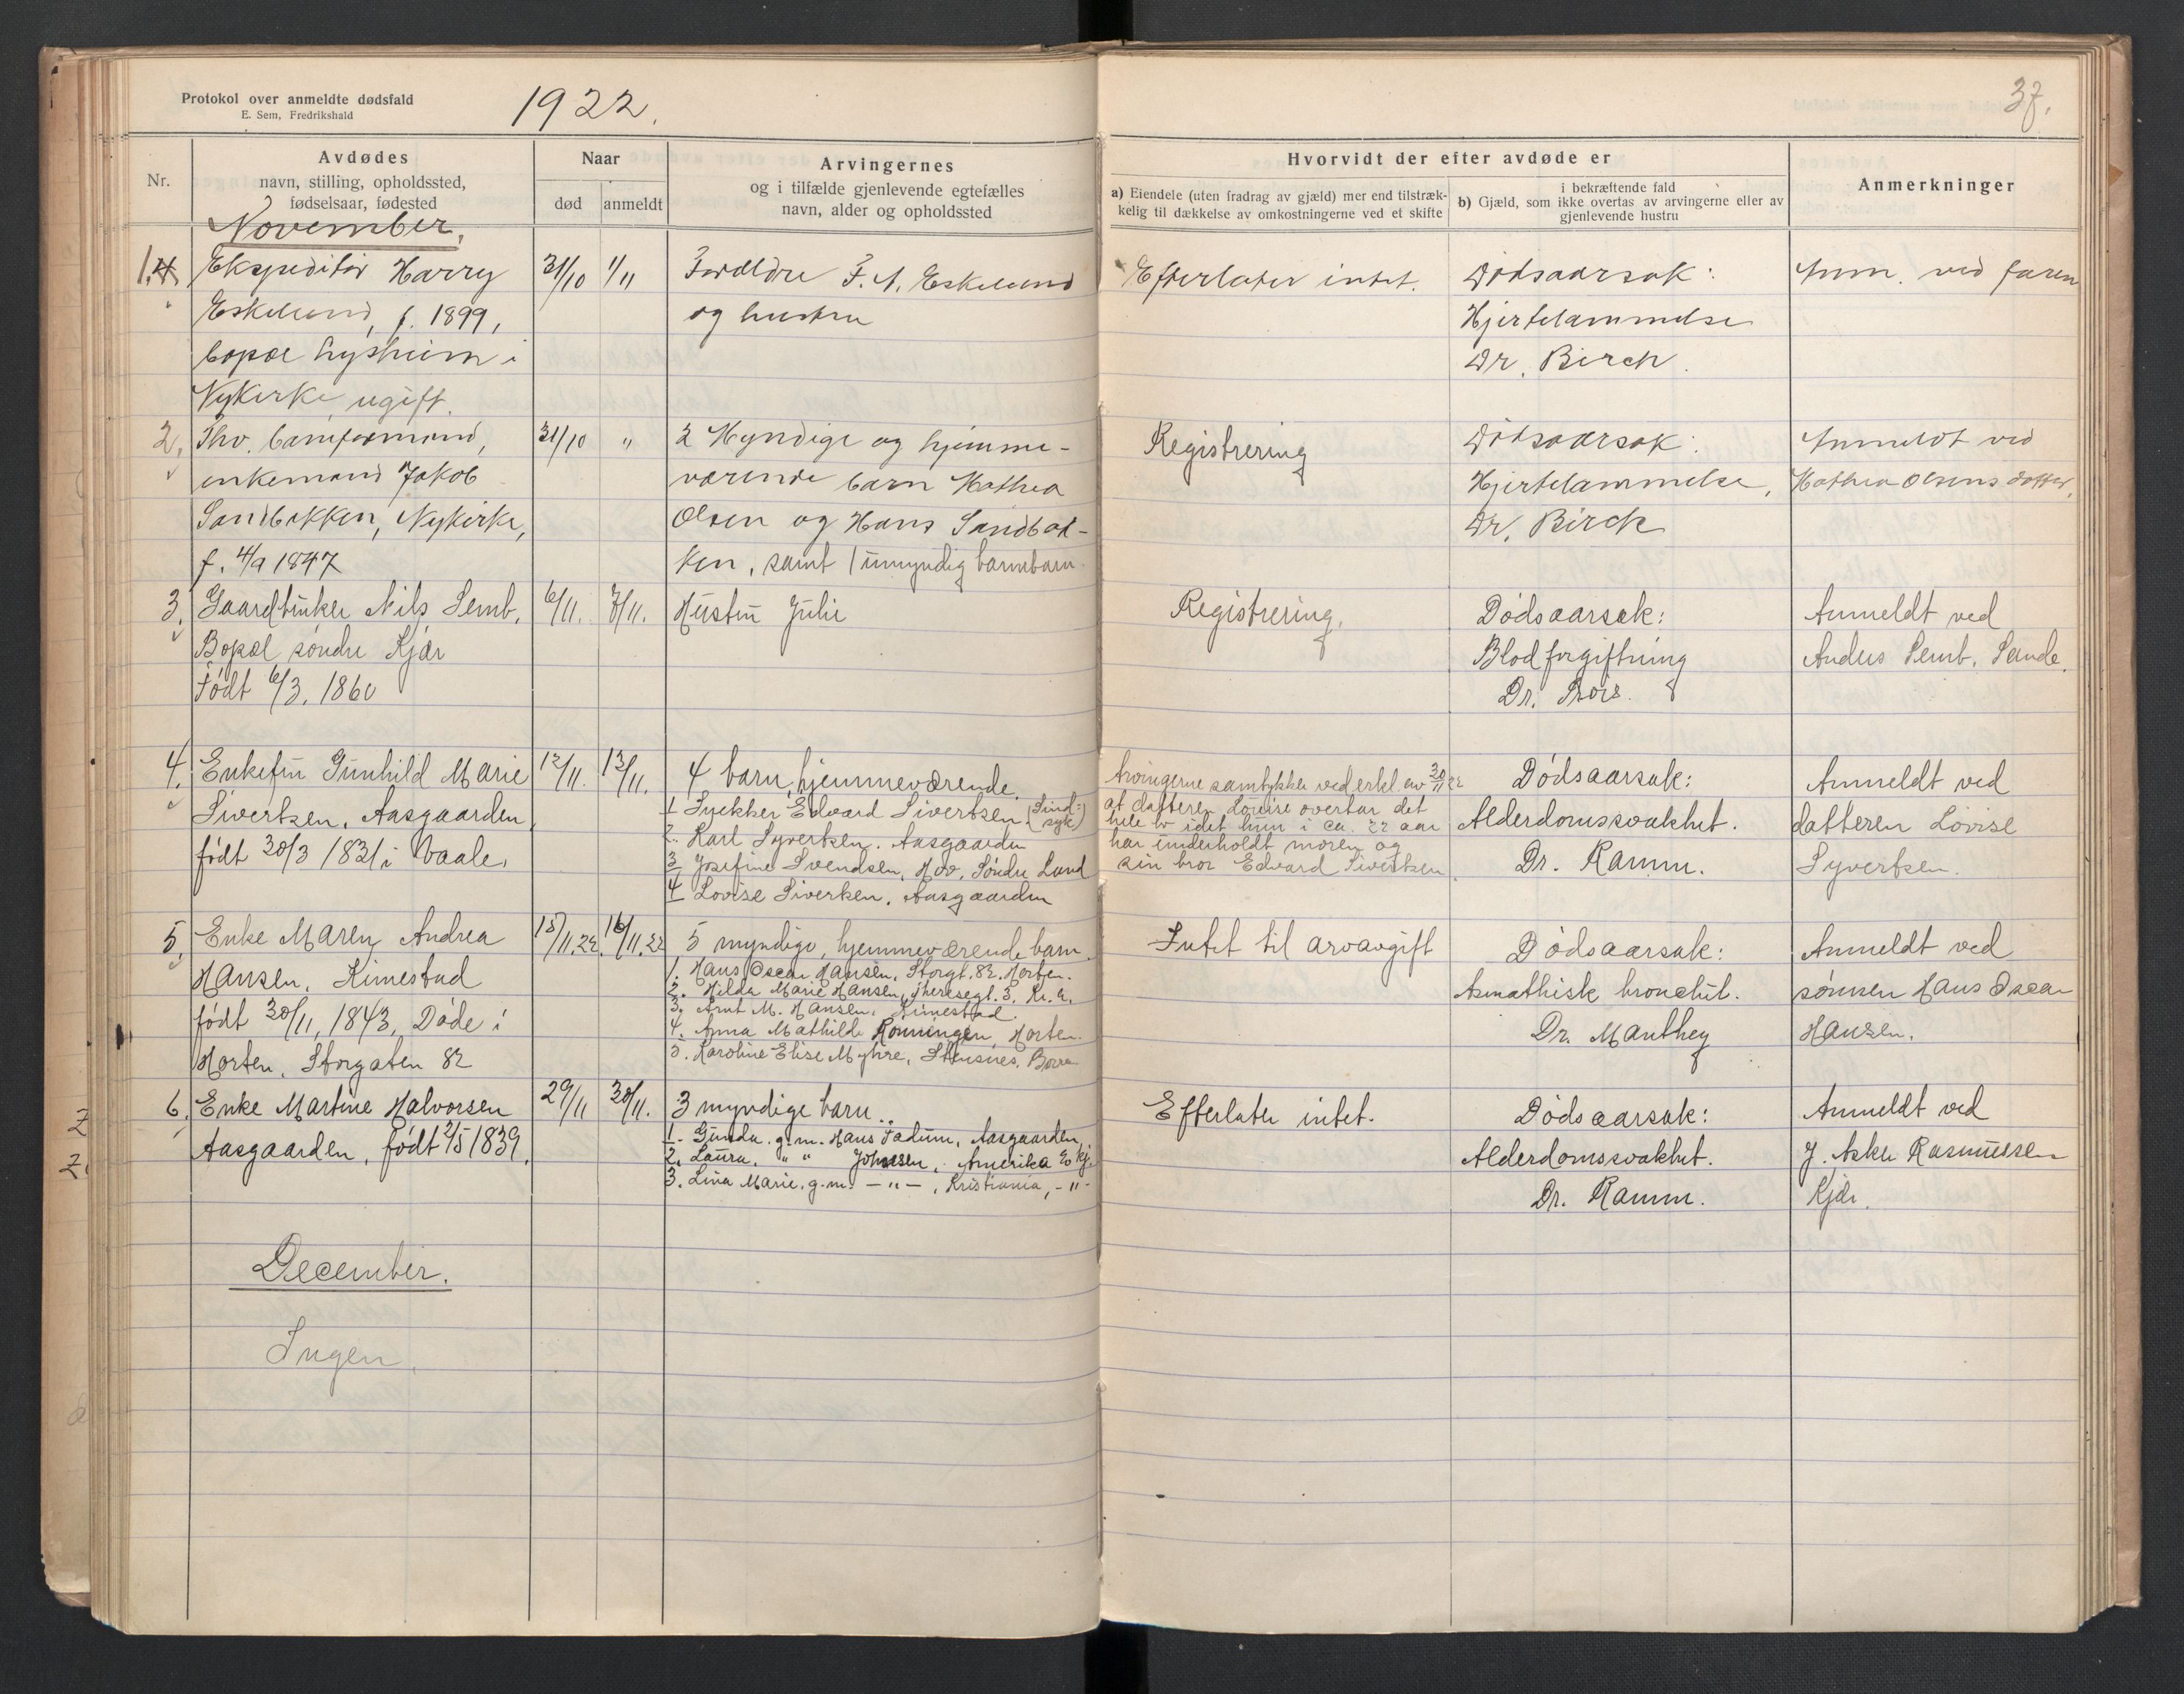 Protokol over anmeldte dødsfald
E. Sem, Fredrikshald
1922.
37.
Nr.
Avdødes
navn, stilling, opholdssted,
fødselsaar, fødested
Naar
død
anmeldt
Arvingernes
og i tilfælde gjenlevende egtefælles
navn, alder og opholdssted
Hvorvidt der efter avdøde er
a) Eiendele (uten fradrag av gjæld) mer end tilstræk-
kelig til dækkelse av omkostningerne ved et skifte
i bekræftende fald
b) Gjæld, som ikke overtas av arvingerne eller av
gjenlevende hustru
Anmerkninger
November.
1.
Ekspeditør Harry
Eskelund, f. 1899,
bopæl Lysheim i
Nykirke, ugift.
31/10
1/11
Forældre F. A. Eskelund
og hustru
Efterlater intet.
Dødsaarsak:
Hjertelammelse
Dr. Birch.
Anm. ved faren
2.
Thv.
enkemand Jakob
Sandbakken, Nykirke,
f. 4/9 1847
31/10
"
2 Myndige og hjemme-
værende barn Mathea
Olsen og Hans Sandbak-
ken, samt 1 umyndig barnebarn.
Registrering
Dødsaarsak:
Hjertelammelse,
Dr. Birch
Anmeldt ved
Mathea Olsens datter,
3.
Gaardbruker Nils Semb,
Bopæl søndre Kjær
Født 6/3. 1860
6/11.
7/11.
Hustru Julie
Registrering.
Dødsaarsak:
Blodforgiftning
Dr.
Anmeldt ved
Anders Semb, Sande.
4.
Enkefru Gunhild Marie
Sivertsen, Aasgaarden,
født 30/3 1831 i Vaale.
12/11.
13/11.
4 barn, hjemmeværende.
1 Snekker Edvard Sivertsen (Sind-
syk)
2. Karl Syvertsen. Aasgaarden
3 Josefine Svendsen, Hov, Søndre Land
4 Lovise Sivertsen, Aasgaarden
Arvingerne samtykker ved erkl. av 30/11 22
at datteren Lovise overtar det
hele bo idet hun i ca. 22 aar
har underholdt moren og
sin bror Edvard Sivertsen.
Dødsaarsak:
Alderdomssvakhet.
Dr. Ramm.
Anmeldt ved
datteren Lovise
Syvertsen.
5.
Enke Maren Andrea
Hansen, Kimestad
født 30/11, 1843, Døde i
Horten, Storgaten 82
15/11.22.
16/11.22
5 myndige, hjemmeværende barn.
1. Hans Oscar Hansen, Storgt. 82. Horten.
2. Hilda Marie Hansen, Theresegt. 3. Kr.a.
3. Arnt M. Hansen, Kimestad.
4. Anna Mathilde Rønningen, Horten.
5. Karoline Elise Myhre, Stensnes, Borre
Intet til arvavgift
Dødsaarsak:
Asmathisk bronchit.
Dr. Manthey
Anmeldt ved
sønnen Hans Oscar
Hansen.
6.
Enke Martine Halvorsen
Aasgaarden, født 21/5 1839.
29/11
30/11.
3 myndige barn.
1. Gunda, g.m. Hans Fadum, Aasgaarden,
2. Laura, " " Johnsen, Amerika
3. Lina Marie, g.m. — " —, Kristiania, - " -
Efterlater intet.
Dødsaarsak:
Alderdomssvakhet.
Dr. Ramm.
Anmeldt ved
J. Asker Rasmussen
Kjær.
December.
Ingen.